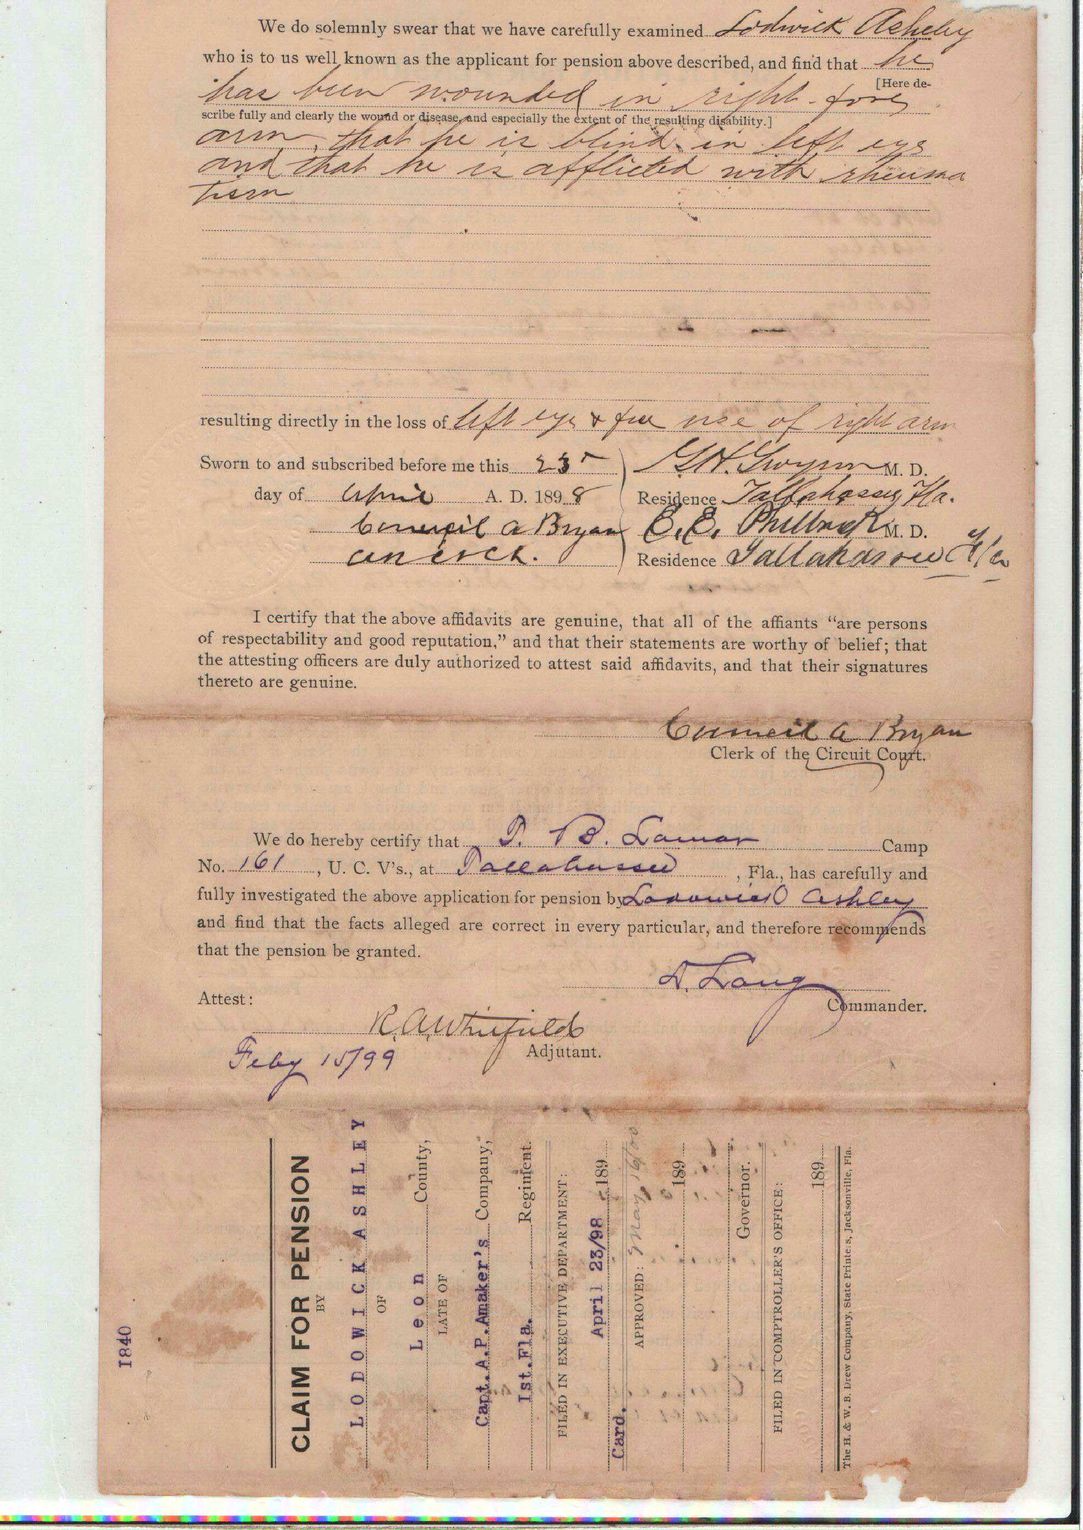 We do solemnly swear that we have carefully examined Lodwick Asheley
who is to us well known as the applicant for pension above described, and find that he
[Here de-
has been wounded in right fore
scribe fully and clearly the wound or disease, and especially the extent of the resulting disability.]
arm, that he is blind in left eye
and that he is afflicted with rheuma
tism
resulting directly in the loss of left eye & free use of right arm
Sworn to and subscribed before me this 23 G.H. Gwynn M. D.
day of April A. D. 1898 Residence Tallahassee, Fla.
Council A Bryan E. E. Philbrick M. D.
Clerk. Residence Tallahassee Fla
I certify that the above affidavits are genuine, that all of the affiants “are persons
of respectability and good reputation,” and that their statements are worthy of belief; that
the attesting officers are duly authorized to attest said affidavits, and that their signatures
thereto are genuine.
Council A Bryan
Clerk of the Circuit Court.
We do hereby certify that B. Lamar Camp
No. 161, U. C. V's., at Tallahassee, Fla., has carefully and
fully investigated the above application for pension by Lodowick Ashley
and find that the facts alleged are correct in every particular, and therefore recommends
that the pension be granted.
Lang
Commander.
Attest:
R. A. Whitfield
Adjutant.
Feby 15/99
1840
CLAIM FOR PENSION
BY
LODOWICK ASHLEY
OF
Leon County,
LATE OF
Capt. A.P. Amaker's Company,
1st. Fla. Regiment.
FILED IN EXECUTIVE DEPARTMENT:
April 23/98 189
Card.
APPROVED: May 16/00
189
Governor.
FILED IN COMPTROLLER'S OFFICE:
189
The H. & W. B. Drew Company, State Printers, Jacksonville, Fla.